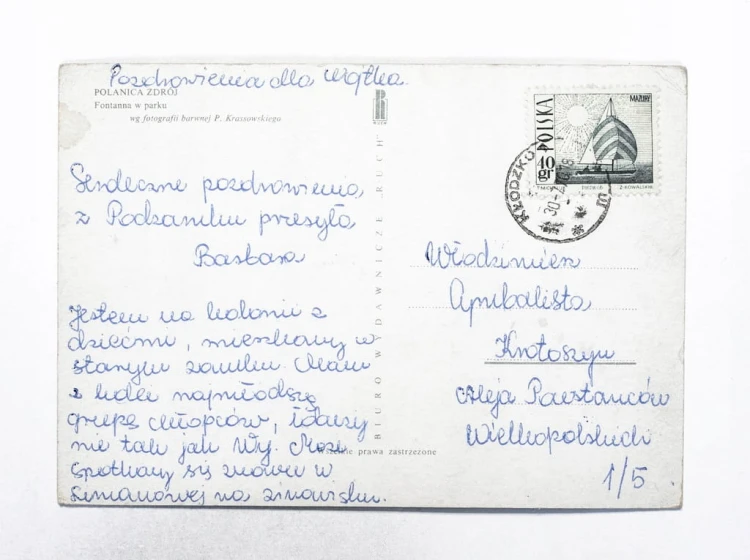 Pozdrowienia dla Wojtka.
POLANICA ZDRÓJ
Fontanna w parku
wg fotografii barwnej P. Krassowskiego
Serdeczne pozdrowienia
z Podzamku przesyła
Barbara
Jestem na kolonii z
dziećmi, mieszkamy w
starym zamku. Mam
z kolei najmłodszą
grupę chłopców,
nie tak jak Wy. Może
spotkamy się znowu w
Limanowej na zimowisku.
BIURO WYDAWNICZE RUCH
Wszelkie prawa zastrzeżone
MAZURY
POLSKA
40 gr
KŁODZKO 1
Włodzimierz
Cymbalista
Krotoszyn
Aleja Powstańców
Wielkopolskich
1/5